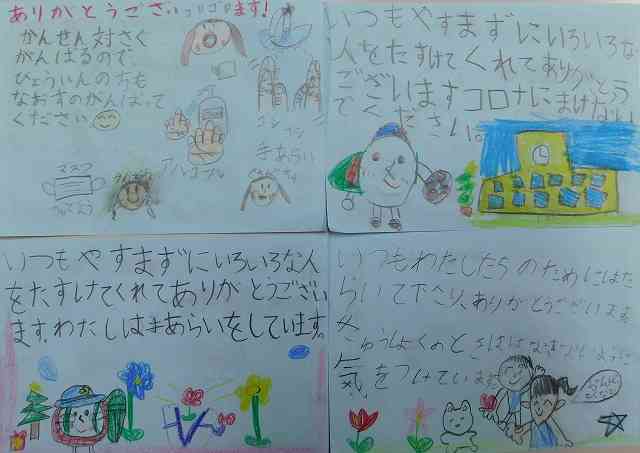 ありがとうございます!
かんせん対さく
がんばるので
びょういんの方も
なおすのがんばって
ください
ゴシ
ゴシ
手あらい
アルコール
マスク
いつもやすまずにいろいろな
人をたすけてくれてありがとう
ございますコロナにまけない
でください。
いつもやすまずにいろいろな人
をたすけてくれてありがとうござい
ます。わたしは手あらいをしています。
いつもわたしたちのためにはた
らいて下さり、ありがとうございます。
きゅうしょくのとき
気をつけています